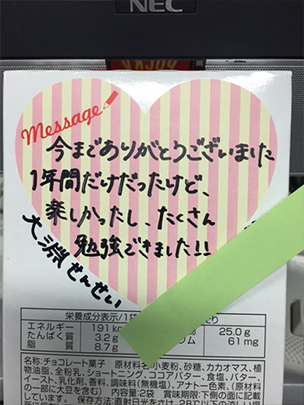 NEC
Message
今までありがとうございました
1年間だけだったけど、
楽しかったし、たくさん
勉強できました!!
大淵せんせい
栄養成分表示/1袋
エネルギー 191 kc
たんぱく質 3.2 g
脂 8.7 g
25.0 g
61 mg
名称:チョコレート菓子 原材料名:小麦粉、砂糖、カカオマス、植
物油脂、全粉乳、ショートニング、ココアバター、食塩、バター、
イースト、乳化剤、香料、調味料(無機塩)、アナトー色素、(原材料
の一部に大豆を含む) 内容量:2袋 賞味期限:下側の面に記
載 保存方法:直射日光をさけ、28℃以下の涼しい場